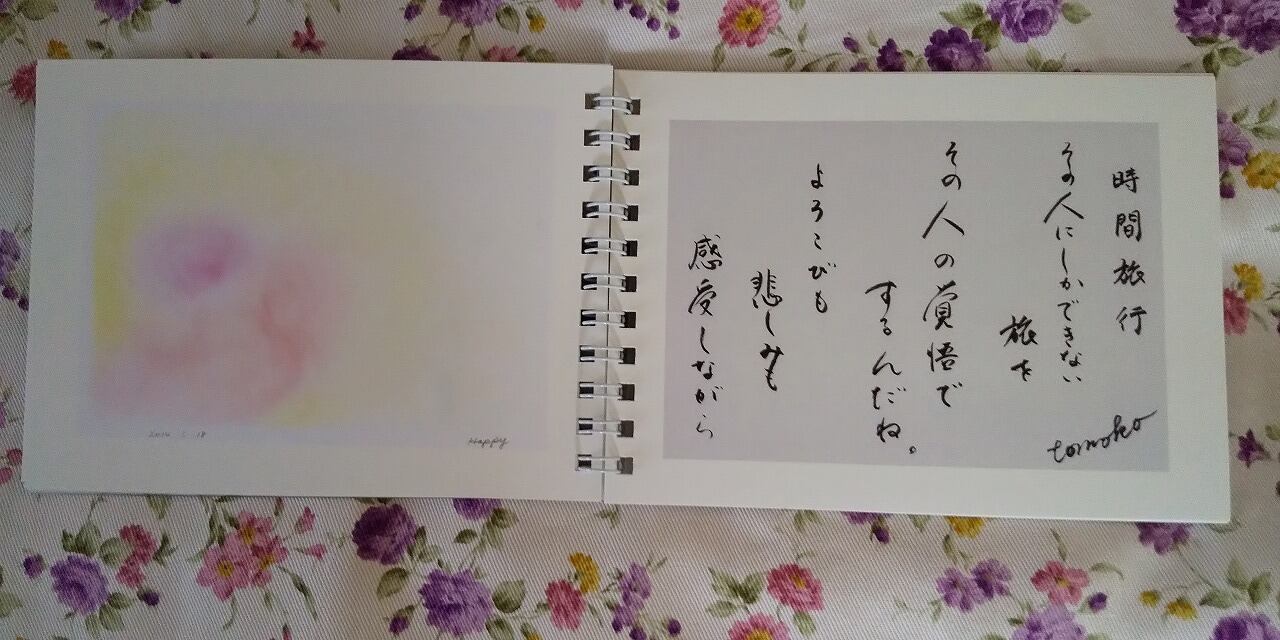 時間旅行
その人にしかできない
旅を
その人の覚悟で
するんだね。
よろこびも
悲しみも
感受しながら
tomoko
Happy